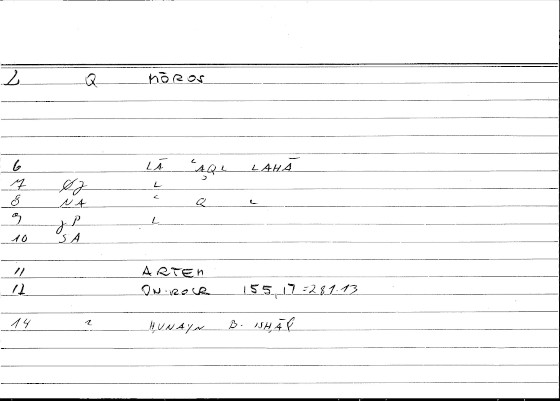 L Q MŌROS
6 LĀ ʿAQL LAHĀ
7 ØJ L
8 NA ʿ Q L
9 JP L
10 SA
11 ARTEM
12 ON-ROCR 155,17=281.13
14 2 ḤUNAYN B. ISḤĀQ